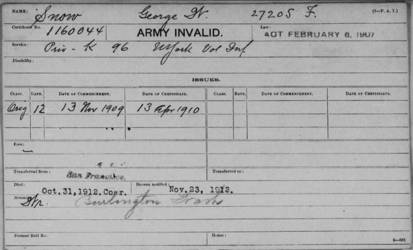 NAME: Snow George W. 27205 F. (3—P. A. T.)
Certificate No. 1160044 ARMY INVALID. Law: ACT FEBRUARY 6, 1907
Service: Priv - K 96 N York Vol Inf
Disability:
ISSUES.
CLASS. RATE. DATE OF COMMENCEMENT. DATE OF CERTIFICATE. CLASS. RATE. DATE OF COMMENCEMENT. DATE OF CERTIFICATE.
Orig 12 13 Nov 1909 13 Apr 1910
Transferred from: San Francisco Transferred to:
Died: Oct. 31, 1912. Corr. Bureau notified Nov. 23, 1912.
Burlington
Former Roll No. Home: